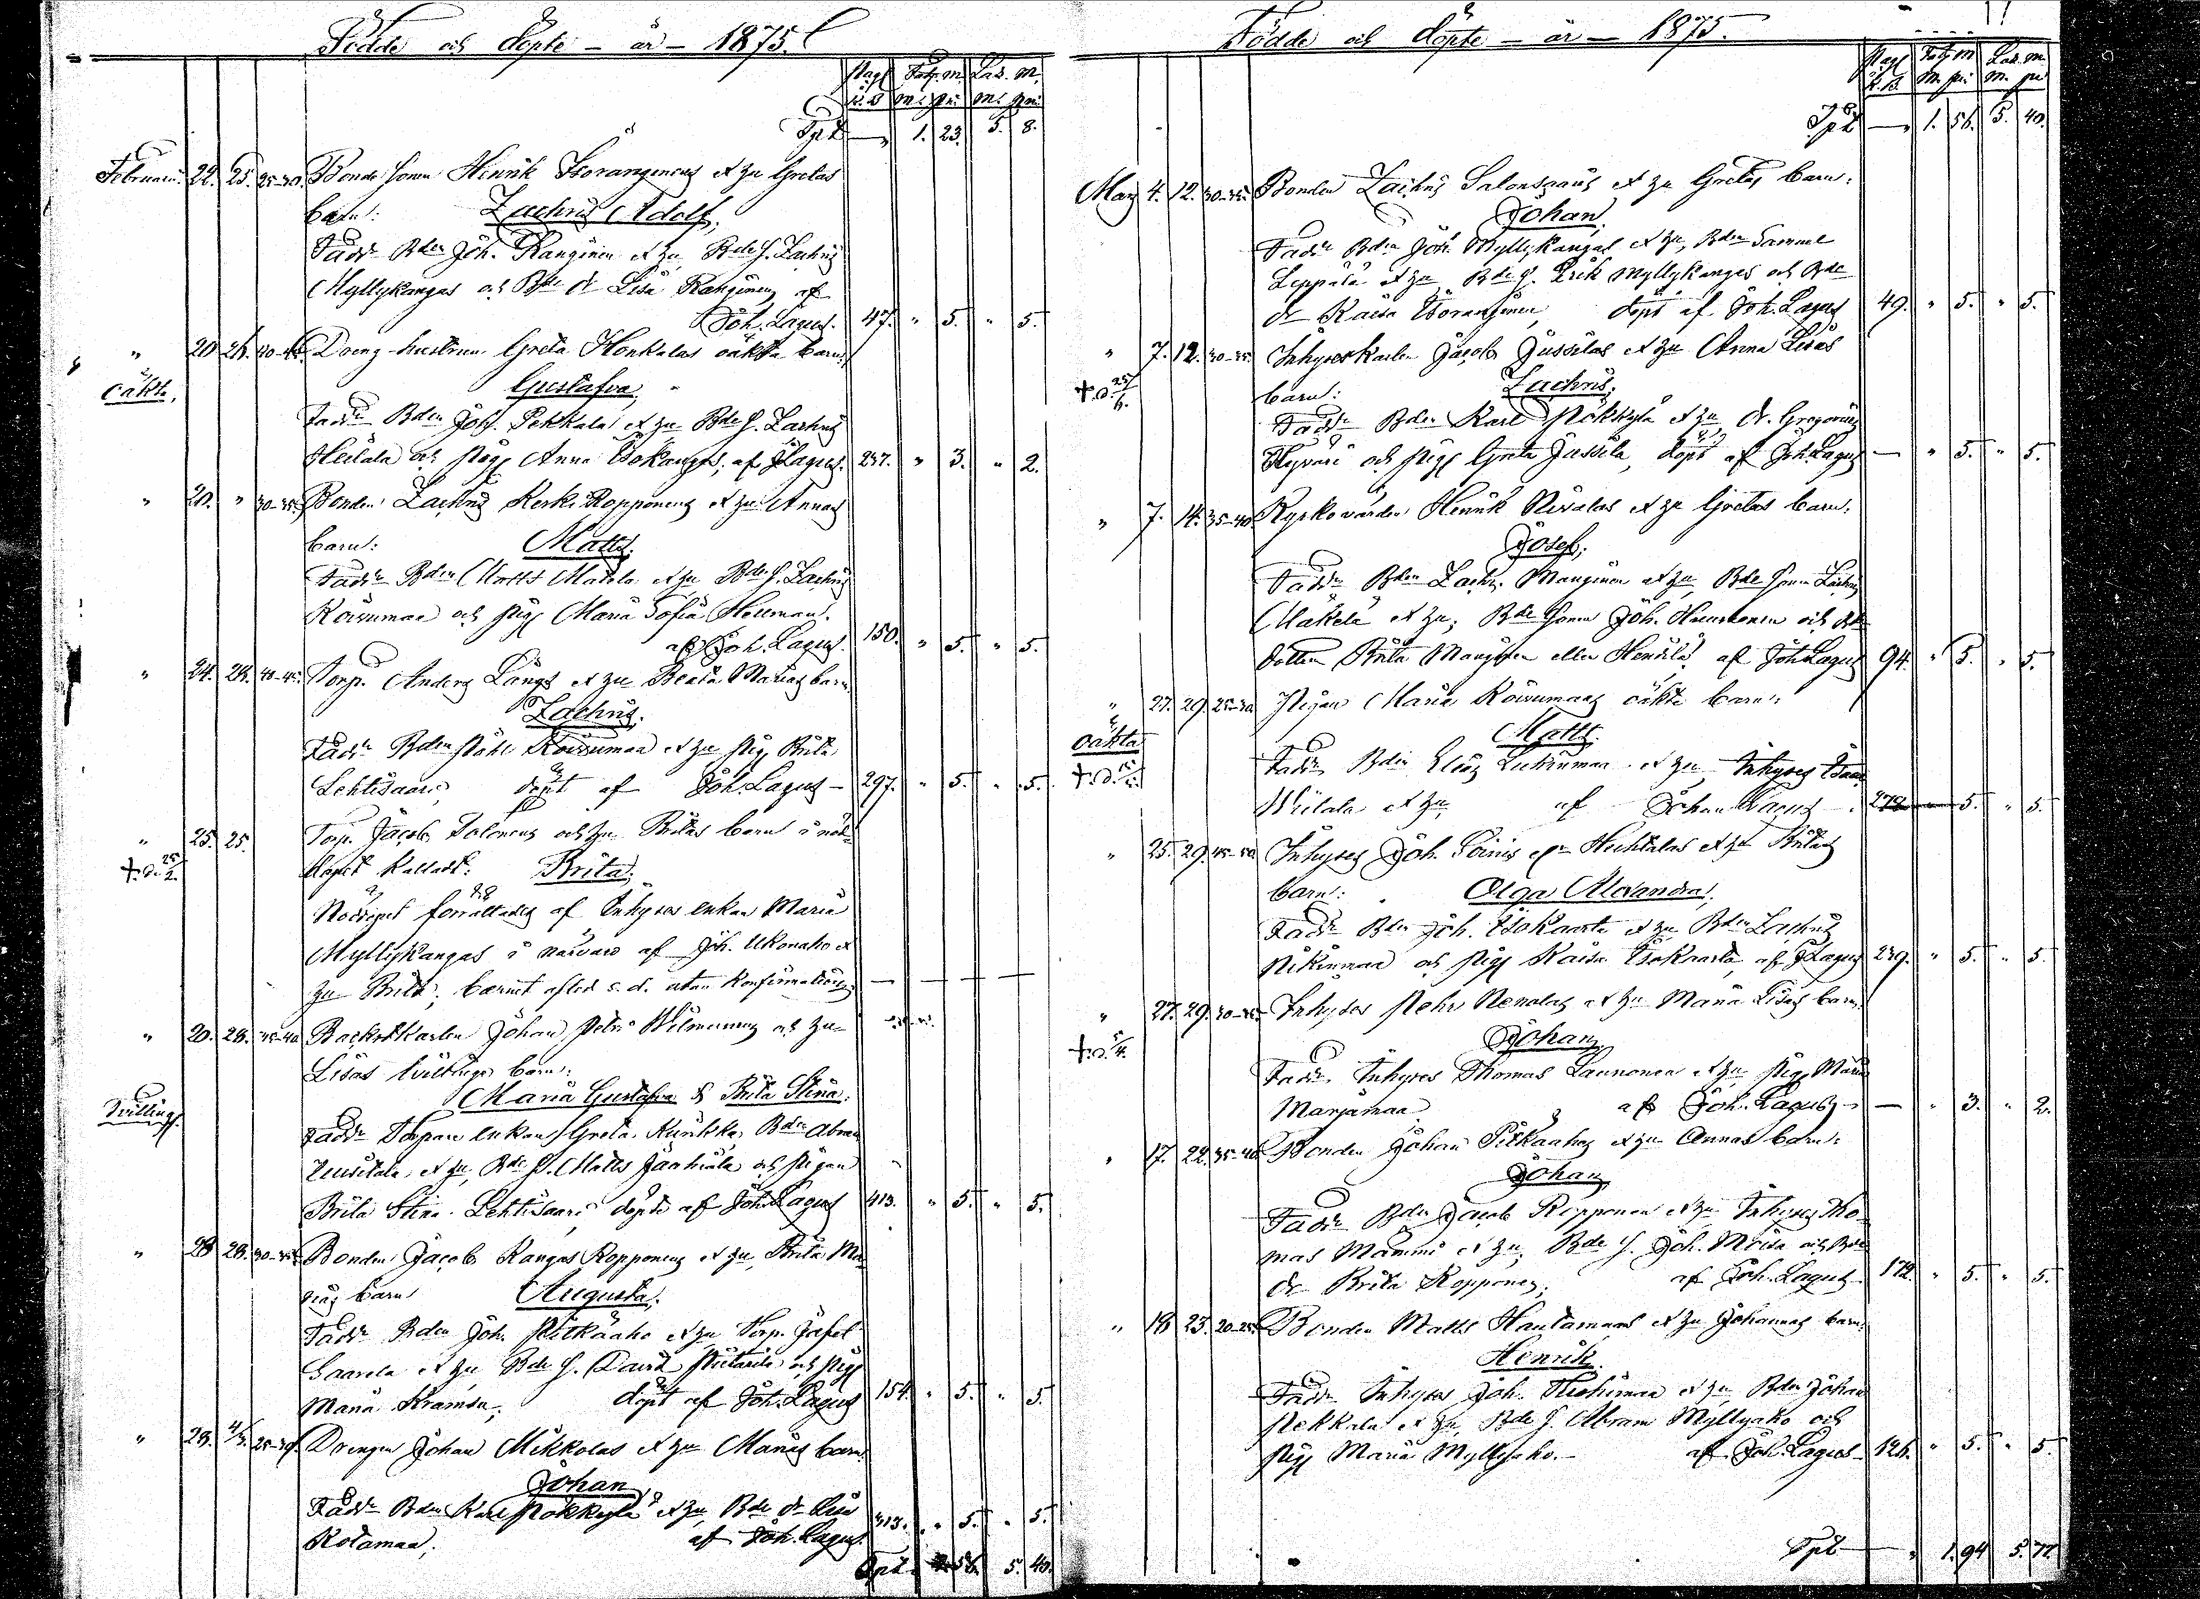 Födde och döpte – år – 1875.
Pag. Fatg. m. Läs. m.
K.B. m. pni. m. pni.
Tpt — 1. 23. 5. 8.
Februari. 22. 25. 25-30. Bonde Sonen Henrik Isorangenens & hu Gretas
barn: Zachris Adolf.
Faddr Bden Joh. Kanginen & hu, Bde S. Zachris
Myllykangas och Bde dr Lisa Kanginen, af
Joh. Lagus. 47. " 5. " 5.
" 20. 26. 40-45. Dreng hustrun Greta Honkalas oäkta barn:
oäkta. Gustafva
Faddr Bden Joh. Pekkala & hu Bde S. Zachris
Heilala och Pig. Anna Isokangas, af J Lagus. 237. " 3. " 2.
" 20. " 30-35. Bonden Zachris Keski Ropponens & hu Annas
barn: Matts.
Faddr Bden Matts Mattila & hu Bde S. Zachris
Koivumaa och Pig. Maria Sofia Hellman.
af Joh. Lagus. 150. " 5. " 5.
" 24. 28. 40-45. Torp. Anders Längs & hu Beata Marias barn
Zachris.
Faddr Bden Påhl Koivumaa & hu Pig. Brita
Lehtisaari, döpt af Joh. Lagus – 297. " 5. " 5.
" 25. 25. Torp. Jacob Tolonens och hu Britas barn i nöd-
†. d. 25/2. döpet kalladt: Brita.
Nöddopet förrättades af Inhyses enkan Maria
Myllykangas i närvaro af Joh. Ukonaho &
hu Brita, barnet afled s. d. utan konfirmation — — —
" 20. 28. 35-40 Backstkarlen Johan Petri Wilmunens och hu
Lisas tvillinge barn:
Tvilling. Maria Gustafva & Brita Stina.
Faddr Torpare enkan Greta Kurikka, Bden Abram
Uusitalo & hu, Bde S. Matts Jaakola och Pigan
Brita Stina Lehtisaari, döpte af Joh. Lagus 413. " 5. " 5.
" 28 28. 30-35 Bonden Jacob Kangas Ropponens & hu, Brita Ma-
rias barn Augusta.
Faddr Bden Joh. Pitkäaho & hu Torp. Josef
Saarela & hu Bde S. David Pietarila och Pig.
Maria Kramsu, döpt af Joh. Lagus 154. " 5. " 5.
" 28. 4/3. 25-30. Drengen Johan Mikkolas & hu Marias barn
Johan
Faddr Bden Karl Pökkylä & hu, Bde dr Lisa
Kotamaa, af Joh. Lagus. 313. " 5. " 5.
Tpt. 56. 5. 40.
Födde och döpte – är – 1875.
11
Pag. Fatg. m. Läs. m.
K.B. m. pni. m. pni
Tpt — 1. 56. 5. 40.
Mars 4. 12. 30-35. Bonden Zachris Salonsaaris & hu Gretas barn:
Johan
Faddr Bden Joh. Myllykangas & hu, Bden Samuel
Leppälä & hu Bde S. Erik Myllykangas och Bde
dr Kaisa Isoranginen, döpt af Joh. Lagus 49. " 5. " 5.
" 7. 12. 30-35. Inhyseskarlen Jacob Jussilas & hu Anna Lisas
†. d. 25/6. barn: Zachris.
Faddr Bden Karl Pökkylä & hu, dr. Gregorius
Hyväri och Pig. Greta Jussila, döpt af Joh. Lagus — " 5. " 5.
" 7. 14. 35-40 Kyrkovärden Henrik Nivalas & hu Gretas barn:
Josef.
Faddr Bden Zachr. Manginen & hu, Bde Sonen Zachris
Mäkelä & hu; Bde Sonen Joh. Haurkonen och Bde
dotten Brita Manginen eller Henrila, af Joh Lagus 94. " 5. " 5.
" 27. 29. 25-30 Pigan Maria Koivumaas oäkta barn:
oäkta Matts.
†. d. Faddr Bden Elias Leikinmaa & hu, Inhyses Isaac
Wiitala & hu, af Johan Lagus 272 — 5. " 5.
" 25. 29. 45-50 Inhyses Joh. Toinis eller Huhtalas & hu Britas
barn: Olga Alexandra.
Faddr Bden Joh. Isokaarto & hu Bden Zachris
Nikinmaa och Pig. Kaisa Isokaarto, af J Lagus 239. " 5. " 5.
" 27. 29. 30-35 Inhyses Pehr Nenolas & hu Maria Lisas barn.
†. d. 5/4. Johan
Faddr Inhyses Thomas Launonen & hu, Pig. Maria
Marjamaa, af Joh. Lagus – — " 3. " 2.
" 17. 22. 35-40 Bonden Johan Pitkäahos & hu Annas barn:
Johan
Faddr Bden Jacob Ropponen & hu Inhyses Tho-
mas Mämmi & hu, Bde S. Joh. Moisa och Bde
dr Brita Ropponen; af Joh. Lagus 172. " 5. " 5.
" 18 23. 20-25. Bonden Matts Hautamaas & hu Johannas barn:
Henrik.
Faddr Inhyses Joh. Keskimaa & hu Bden Johan
Pekkala & hu, Bde S. Abram Myllyaho och
Pig. Maria Myllyaho. – af Joh. Lagus 126. " 5. " 5.
Tpt — 1. 94 5. 72.